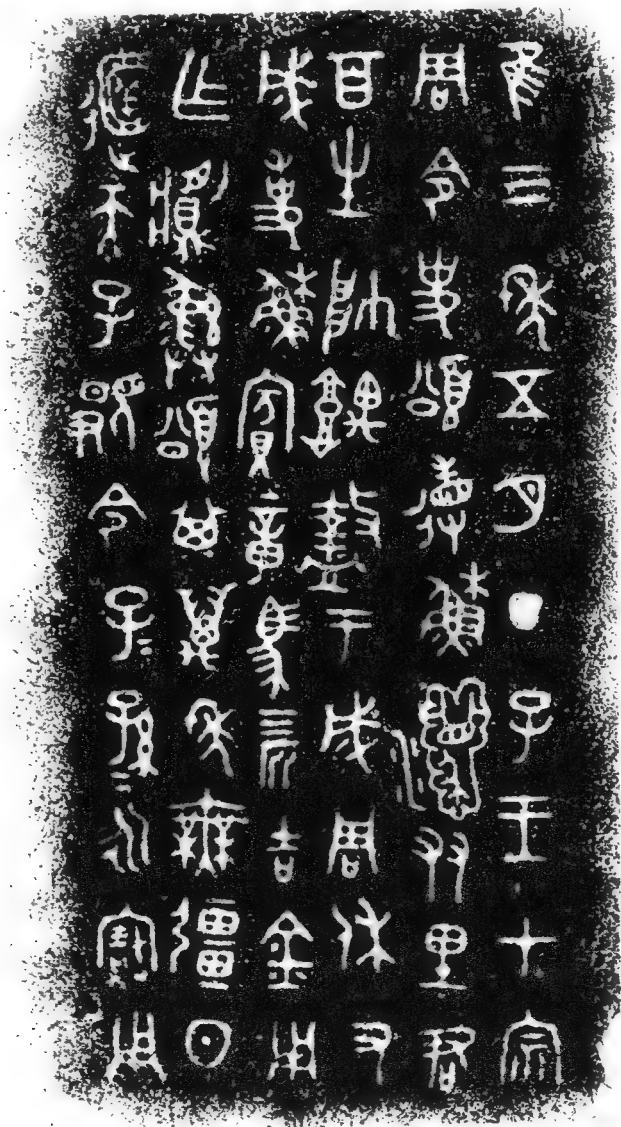 隹三年五月丁子王才宗
周令史頌省穌友里君
百生帥堣盩于成周休又
成事穌賓章馬四匹吉金用
乍𩰬彝頌其萬年無疆日
𨒙天子顯令子=孫=永寶用